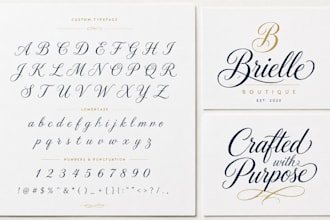 CUSTOM TYPEFACE
A B C D E F G H I
J K L M N O P Q R
S T U V W X Y Z
LOWERCASE
a b c d e f g h i j k l m n o
p q r s t u v w x y z
NUMBERS & PUNCTUATION
1 2 3 4 5 6 7 8 9 0
B
Brielle
BOUTIQUE
EST. 2022
Crafted
with
Purpose